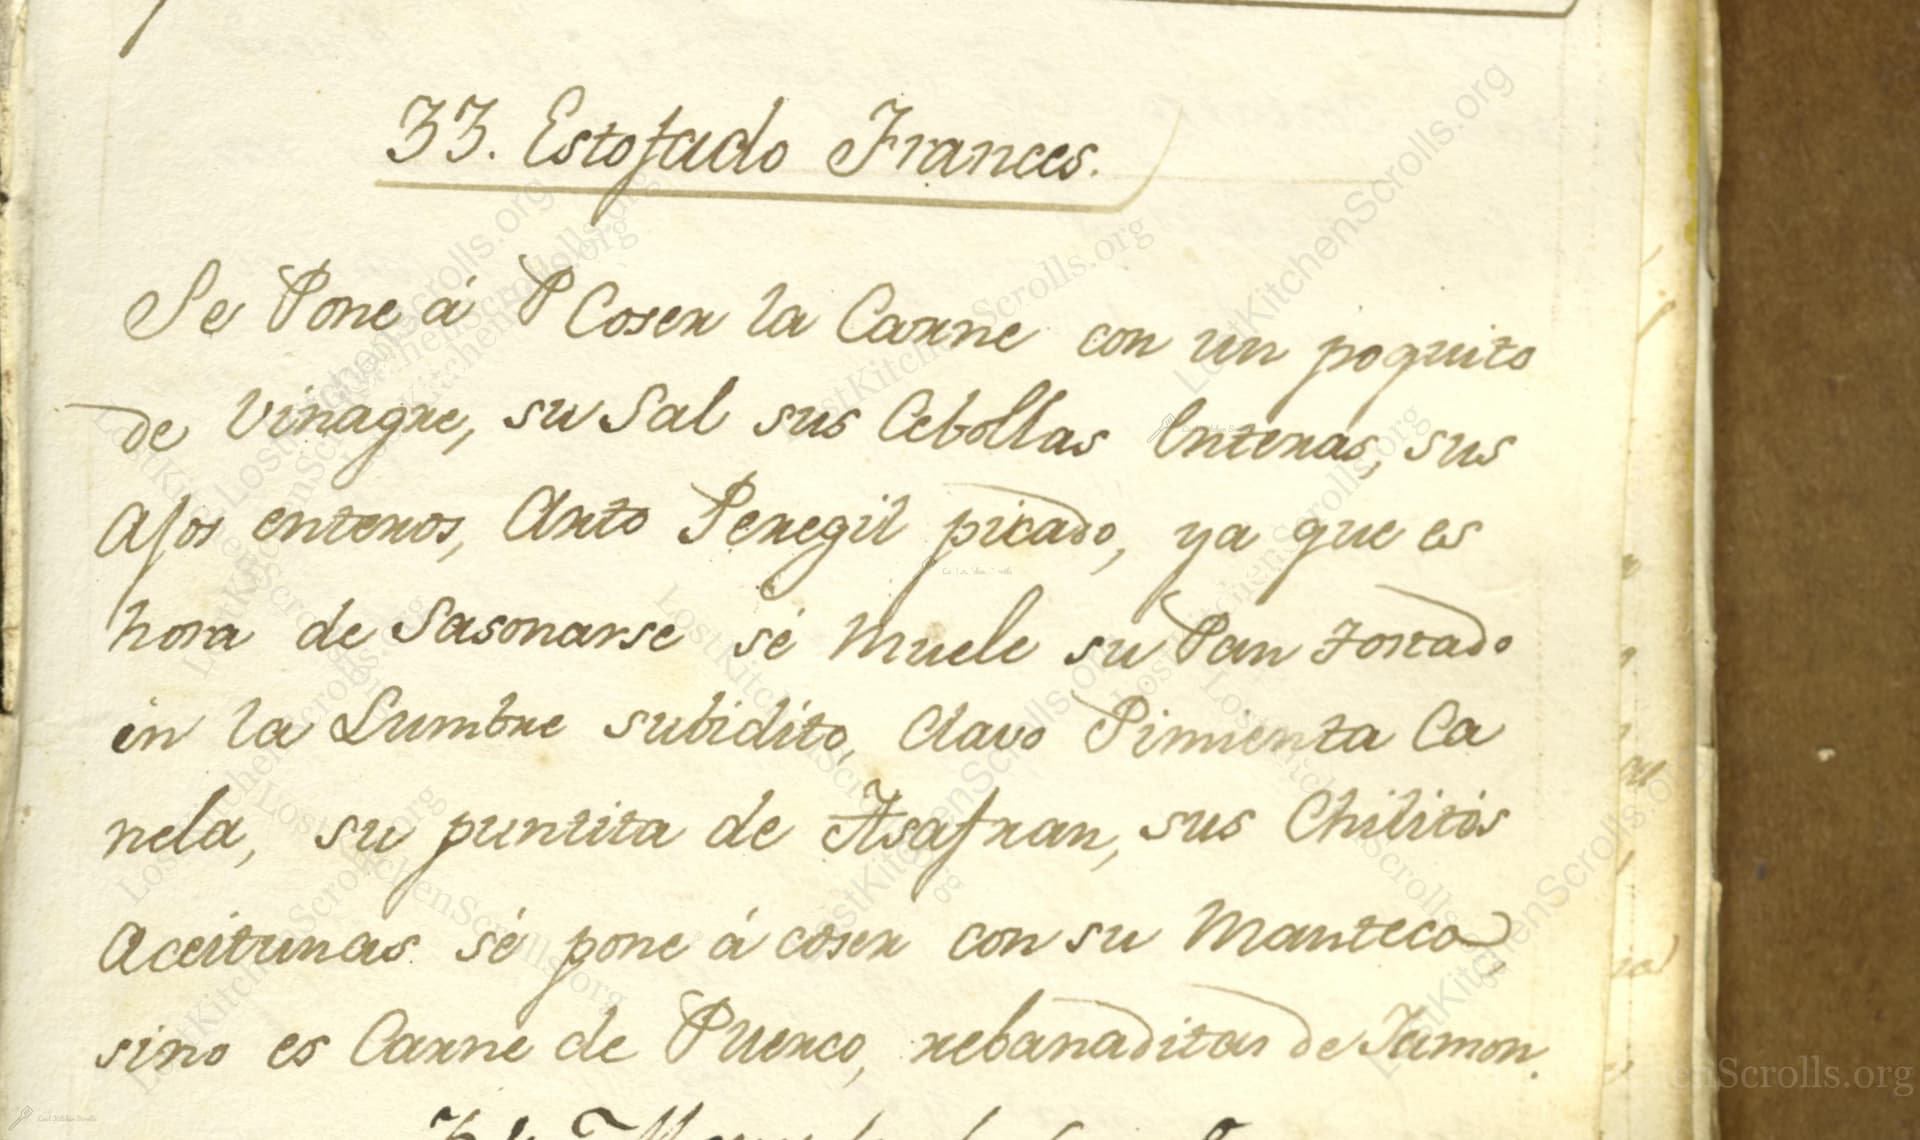 33. Estofado Frances.
Se Pone á P Coser la Carne con un poquito
de Vinagre, su Sal sus Cebollas Enteras, sus
Ajos enteros, Arto Peregil picado, ya que es
hora de Sasonarse sé Muele su Pan tostado
en la Lumbre subidito, Clavo Pimienta Ca
nela, su puntita de Asafran, sus Chilitos
Aceitunas sé pone á coser con su Manteca,
sino es Carne de Puerco, rebanaditas de Jamon.
LostKitchenScrolls.org